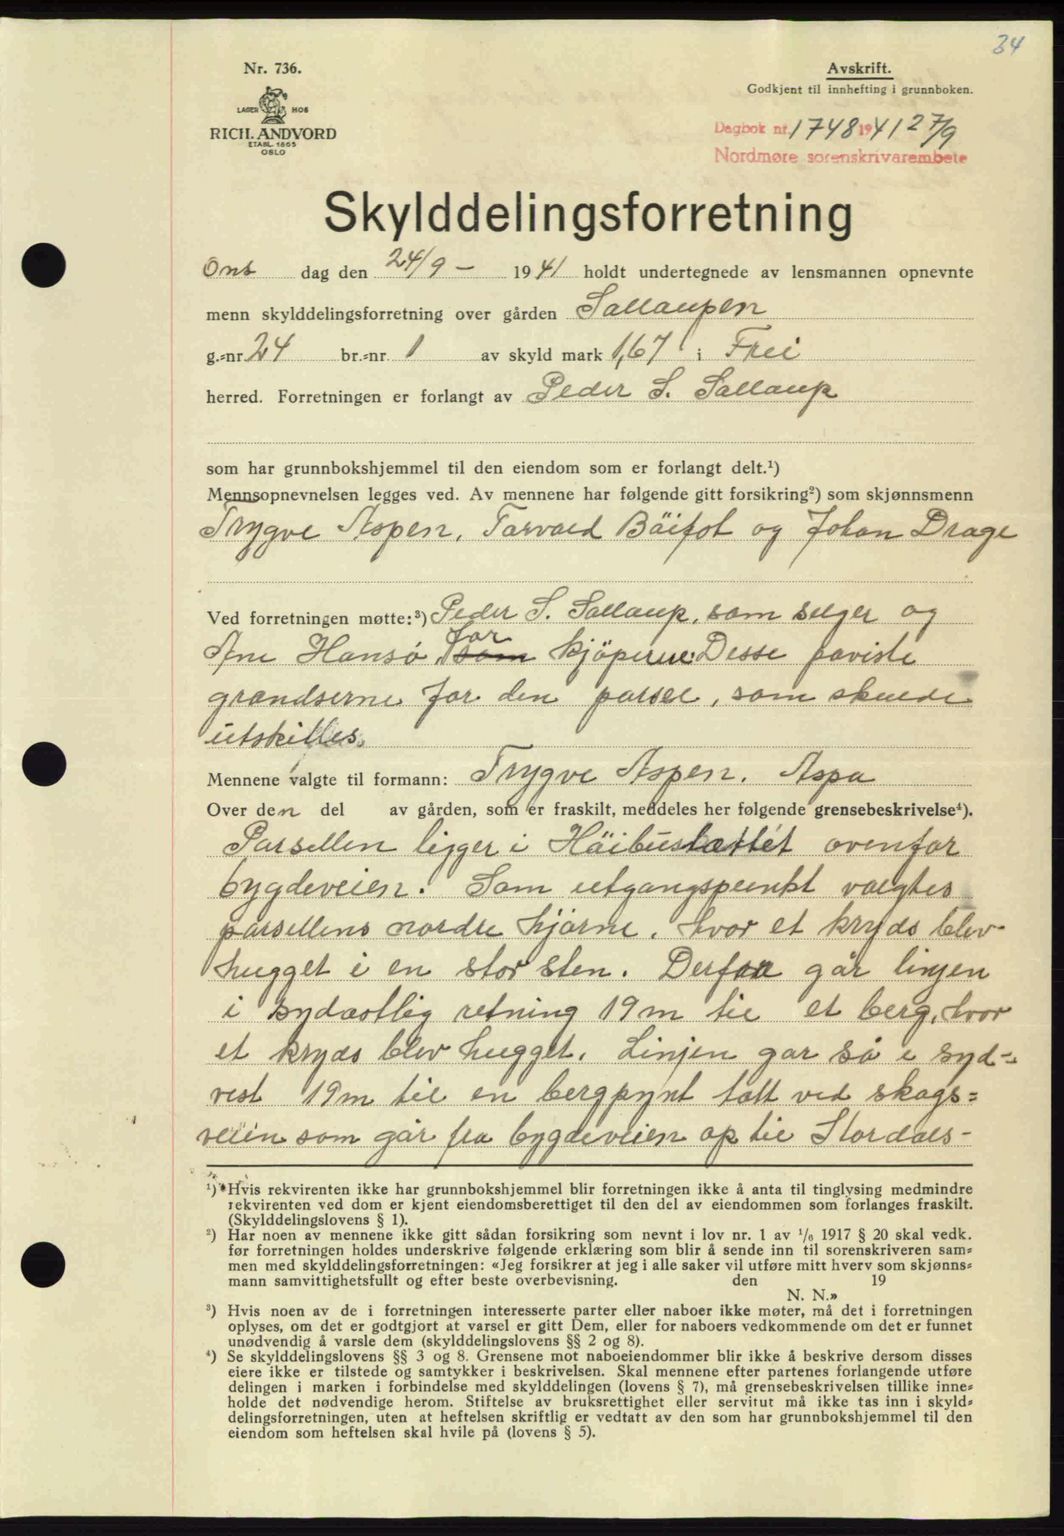 34
Nr. 736.
LAGER HOS
RICH. ANDVORD
ETABL. 1865
OSLO
Avskrift.
Godkjent til innhefting i grunnboken.
Dagbok nr. 1748 1941 27/9
Nordmøre sorenskrivarembete
Skylddelingsforretning
Ons dag den 24/9 - 1941 holdt undertegnede av lensmannen opnevnte
menn skylddelingsforretning over gården Sallaupen
g.=nr. 24 br.=nr. 1 av skyld mark 1,67 i Frei
herred. Forretningen er forlangt av Peder S. Sallaup
som har grunnbokshjemmel til den eiendom som er forlangt delt.¹)
Mennsopnevnelsen legges ved. Av mennene har følgende gitt forsikring²) som skjønnsmenn
Trygve Aspen, Torvald Böifot og Johan Drage
Ved forretningen møtte:³) Peder S. Sallaup, som selger og
Ane Hansö, for kjöperne. Desse paviste
grændserne for den parsel, som skulde
utskilles.
Mennene valgte til formann: Trygve Aspen. Aspa
Over den del av gården, som er fraskilt, meddeles her følgende grensebeskrivelse⁴).
Parsellen ligger i Höibuslættet ovenfor
bygdeveien. Som utgangspunkt valgtes
parsellens nordre hjörne, hvor et kryds blev
hugget i en stor sten. Derfra går linjen
i sydöstlig retning 19 m til et berg, hvor
et kryds blev hugget. Linjen gar så i syd-
vest 19 m til en bergpynt tætt ved skogs=
veien som går fra bygdeveien op til Stordals-
¹) *Hvis rekvirenten ikke har grunnbokshjemmel blir forretningen ikke å anta til tinglysing medmindre
rekvirenten ved dom er kjent eiendomsberettiget til den del av eiendommen som forlanges fraskilt.
(Skylddelingslovens § 1).
²) Har noen av mennene ikke gitt sådan forsikring som nevnt i lov nr. 1 av 1/6 1917 § 20 skal vedk.
før forretningen holdes underskrive følgende erklæring som blir å sende inn til sorenskriveren sam=
men med skylddelingsforretningen: «Jeg forsikrer at jeg i alle saker vil utføre mitt hverv som skjønns=
mann samvittighetsfullt og efter beste overbevisning. den 19
N. N.»
³) Hvis noen av de i forretningen interesserte parter eller naboer ikke møter, må det i forretningen
oplyses, om det er godtgjort at varsel er gitt Dem, eller for naboers vedkommende om det er funnet
unødvendig å varsle dem (skylddelingslovens §§ 2 og 8).
⁴) Se skylddelingslovens §§ 3 og 8. Grensene mot naboeiendommer blir ikke å beskrive dersom disses
eiere ikke er tilstede og samtykker i beskrivelsen. Skal mennene efter partenes forlangende utføre
delingen i marken i forbindelse med skylddelingen (lovens § 7), må grensebeskrivelsen tillike inne=
holde det nødvendige herom. Stiftelse av bruksrettighet eller servitut må ikke tas inn i skyld=
delingsforretningen, uten at heftelsen skriftlig er vedtatt av den som har grunnbokshjemmel til den
eiendom som heftelsen skal hvile på (lovens § 5).